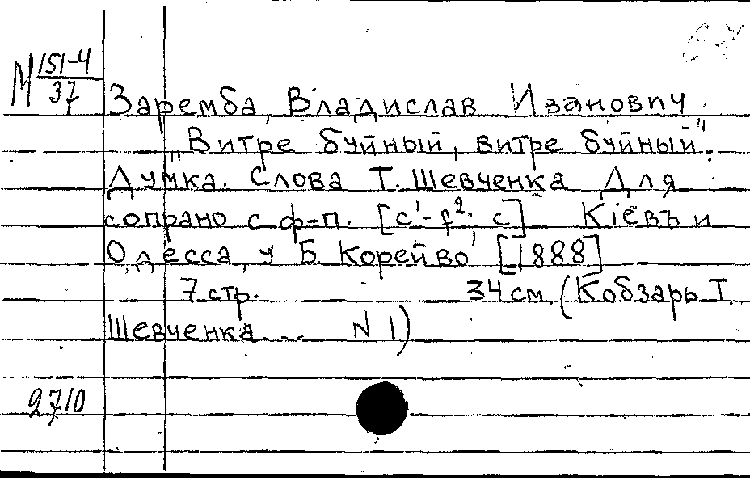 М 151-4
37
Заремба, Владислав Иванович
"Витре буйный, витре буйный".
Думка. Слова Т. Шевченка Для
сопрано с ф=п. [c'-f². c] Кiевъ и
Одесса, у Б. Корейво [1888]
7 стр. 34 см. (Кобзарь Т.
Шевченка ... N 1)
2710